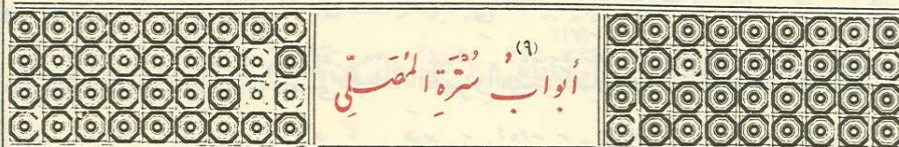 أبوابُ سُتْرَةِ المُصَلِّي (٦)